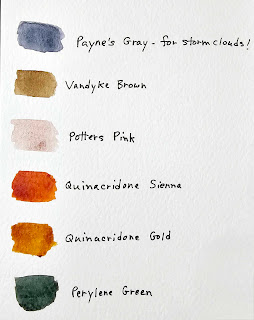 Payne's Gray - for stormclouds!
Vandyke Brown
Potters Pink
Quinacridone Sienna
Quinacridone Gold
Perylene Green